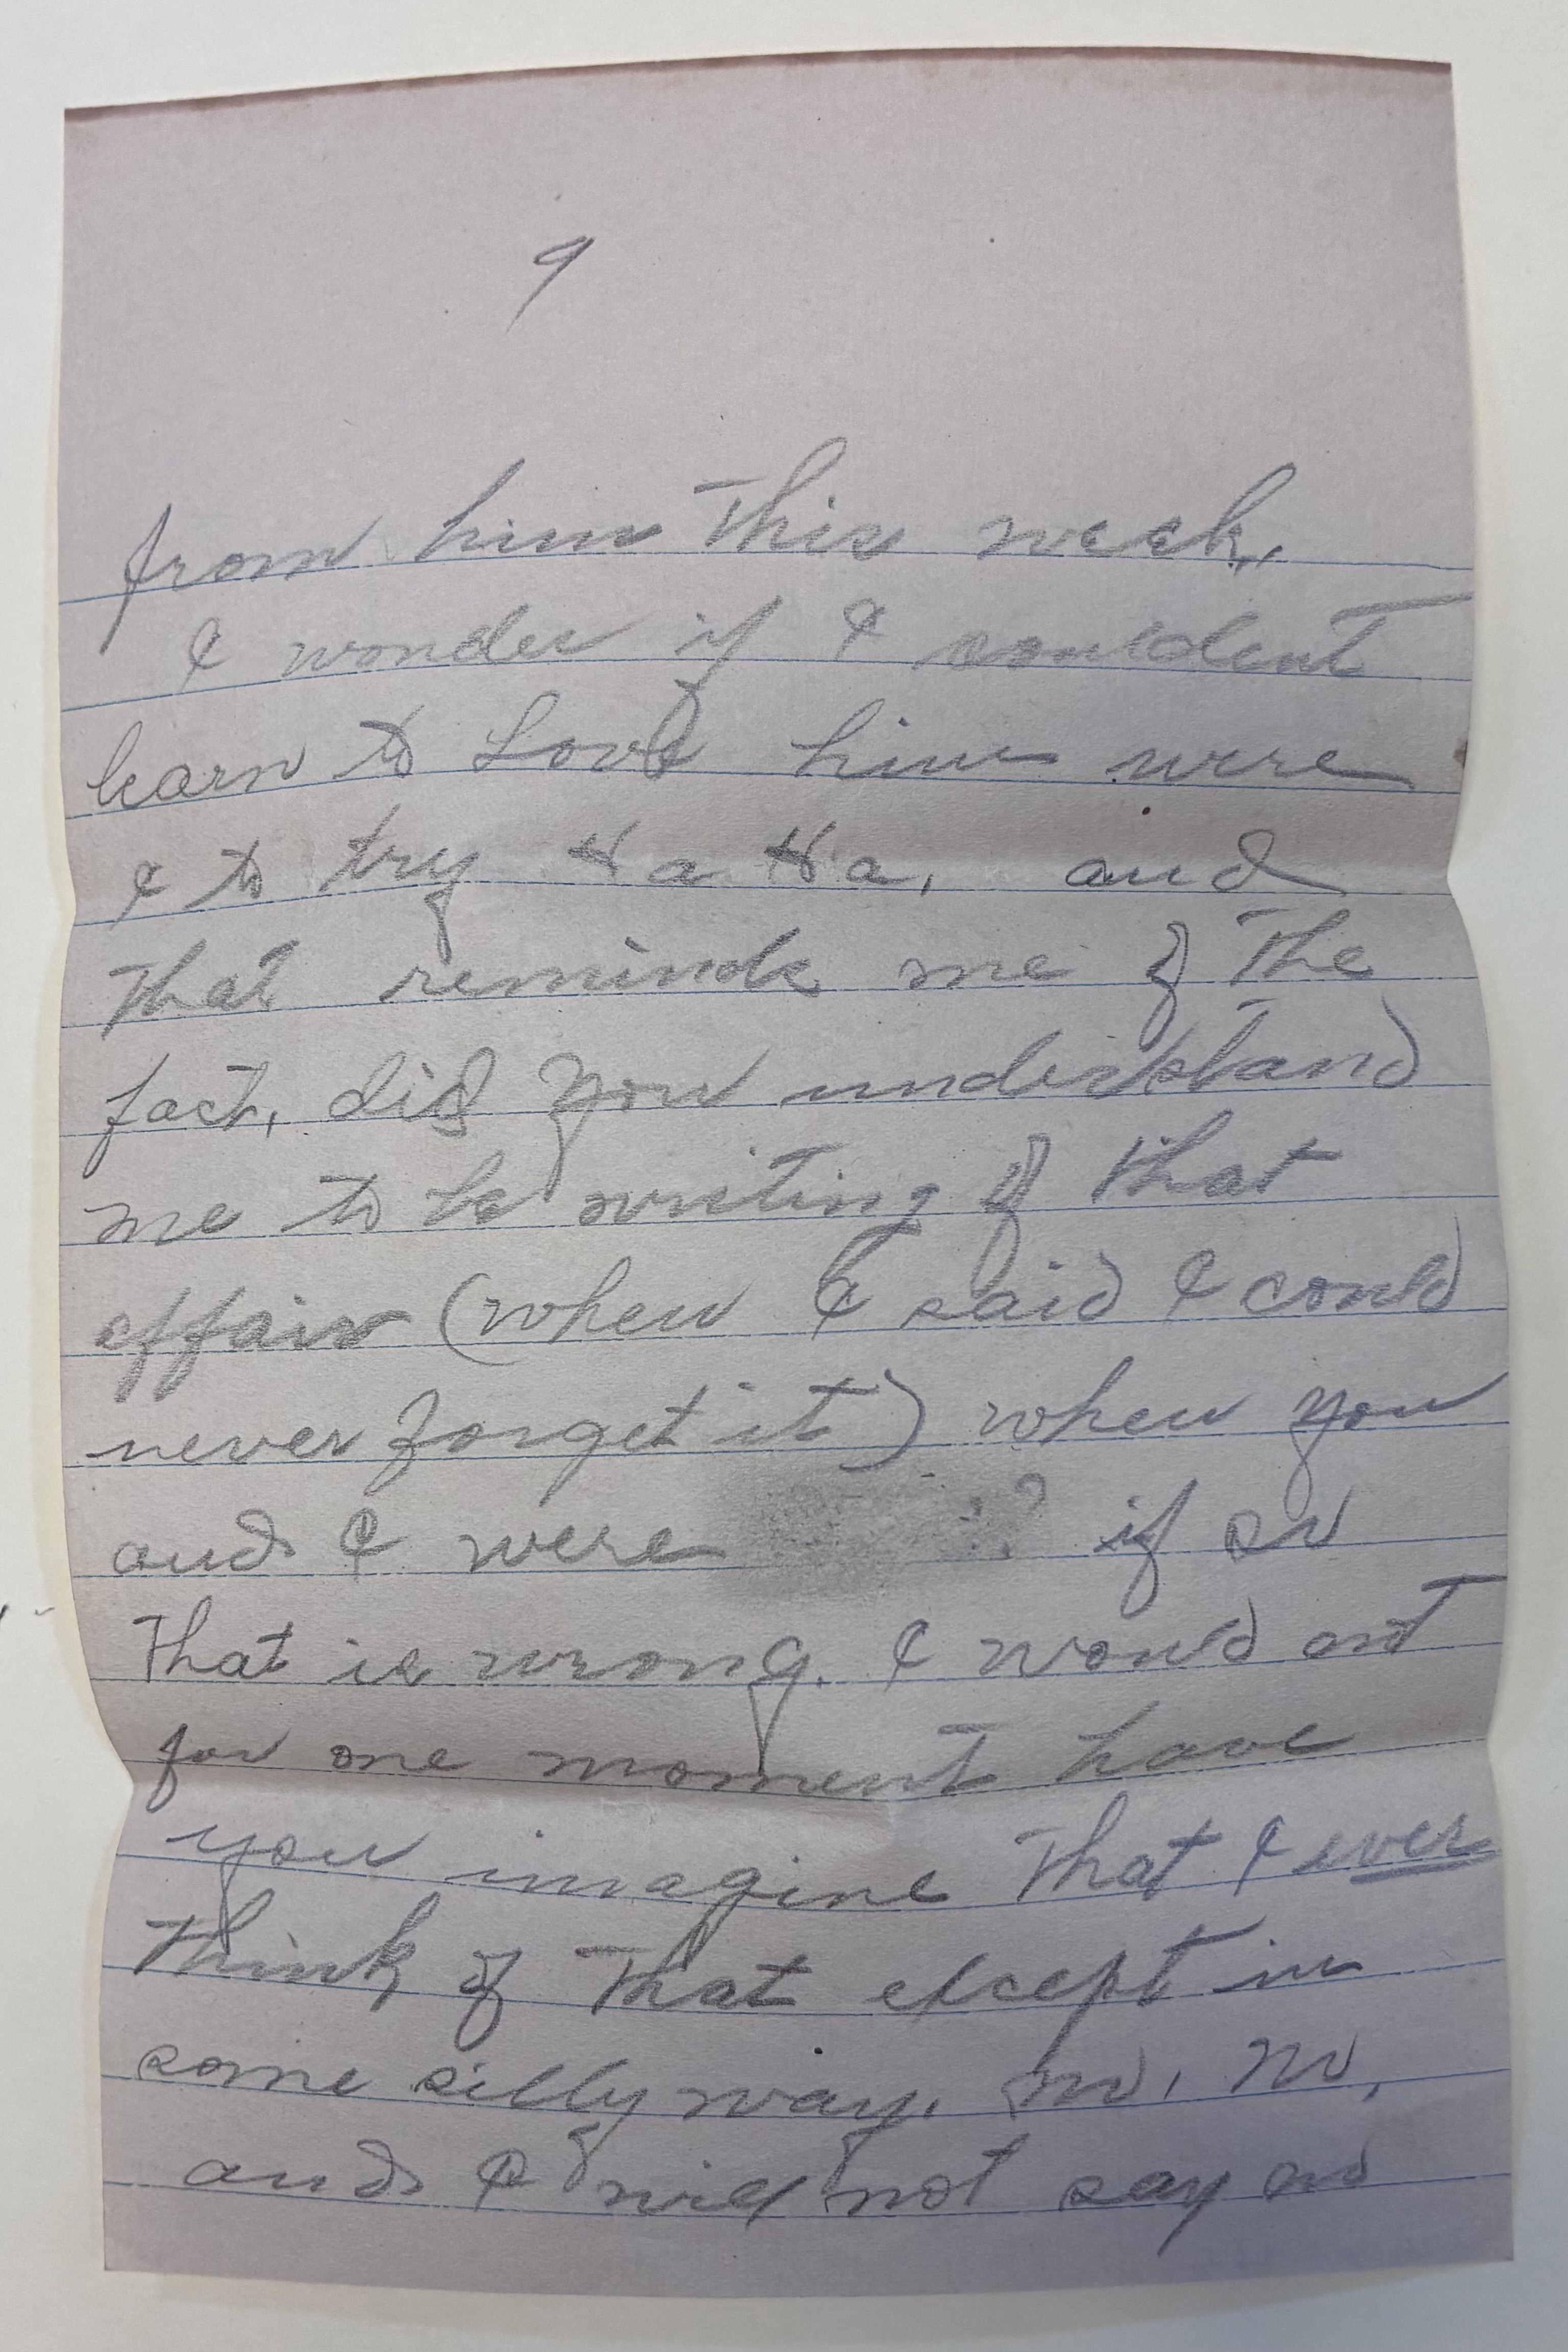 9
from him this week.
I wonder if I couldent
learn to Love him were
I to try Ha Ha, and
that reminds me of the
fact, did you understand
me to be writing of that
affair (when I said I could
never forget it) when you
and I were ? if so
that is wrong. I would not
for one moment have
you imagine that I ever
think of that except in
some silly way. no, no,
and I will not say